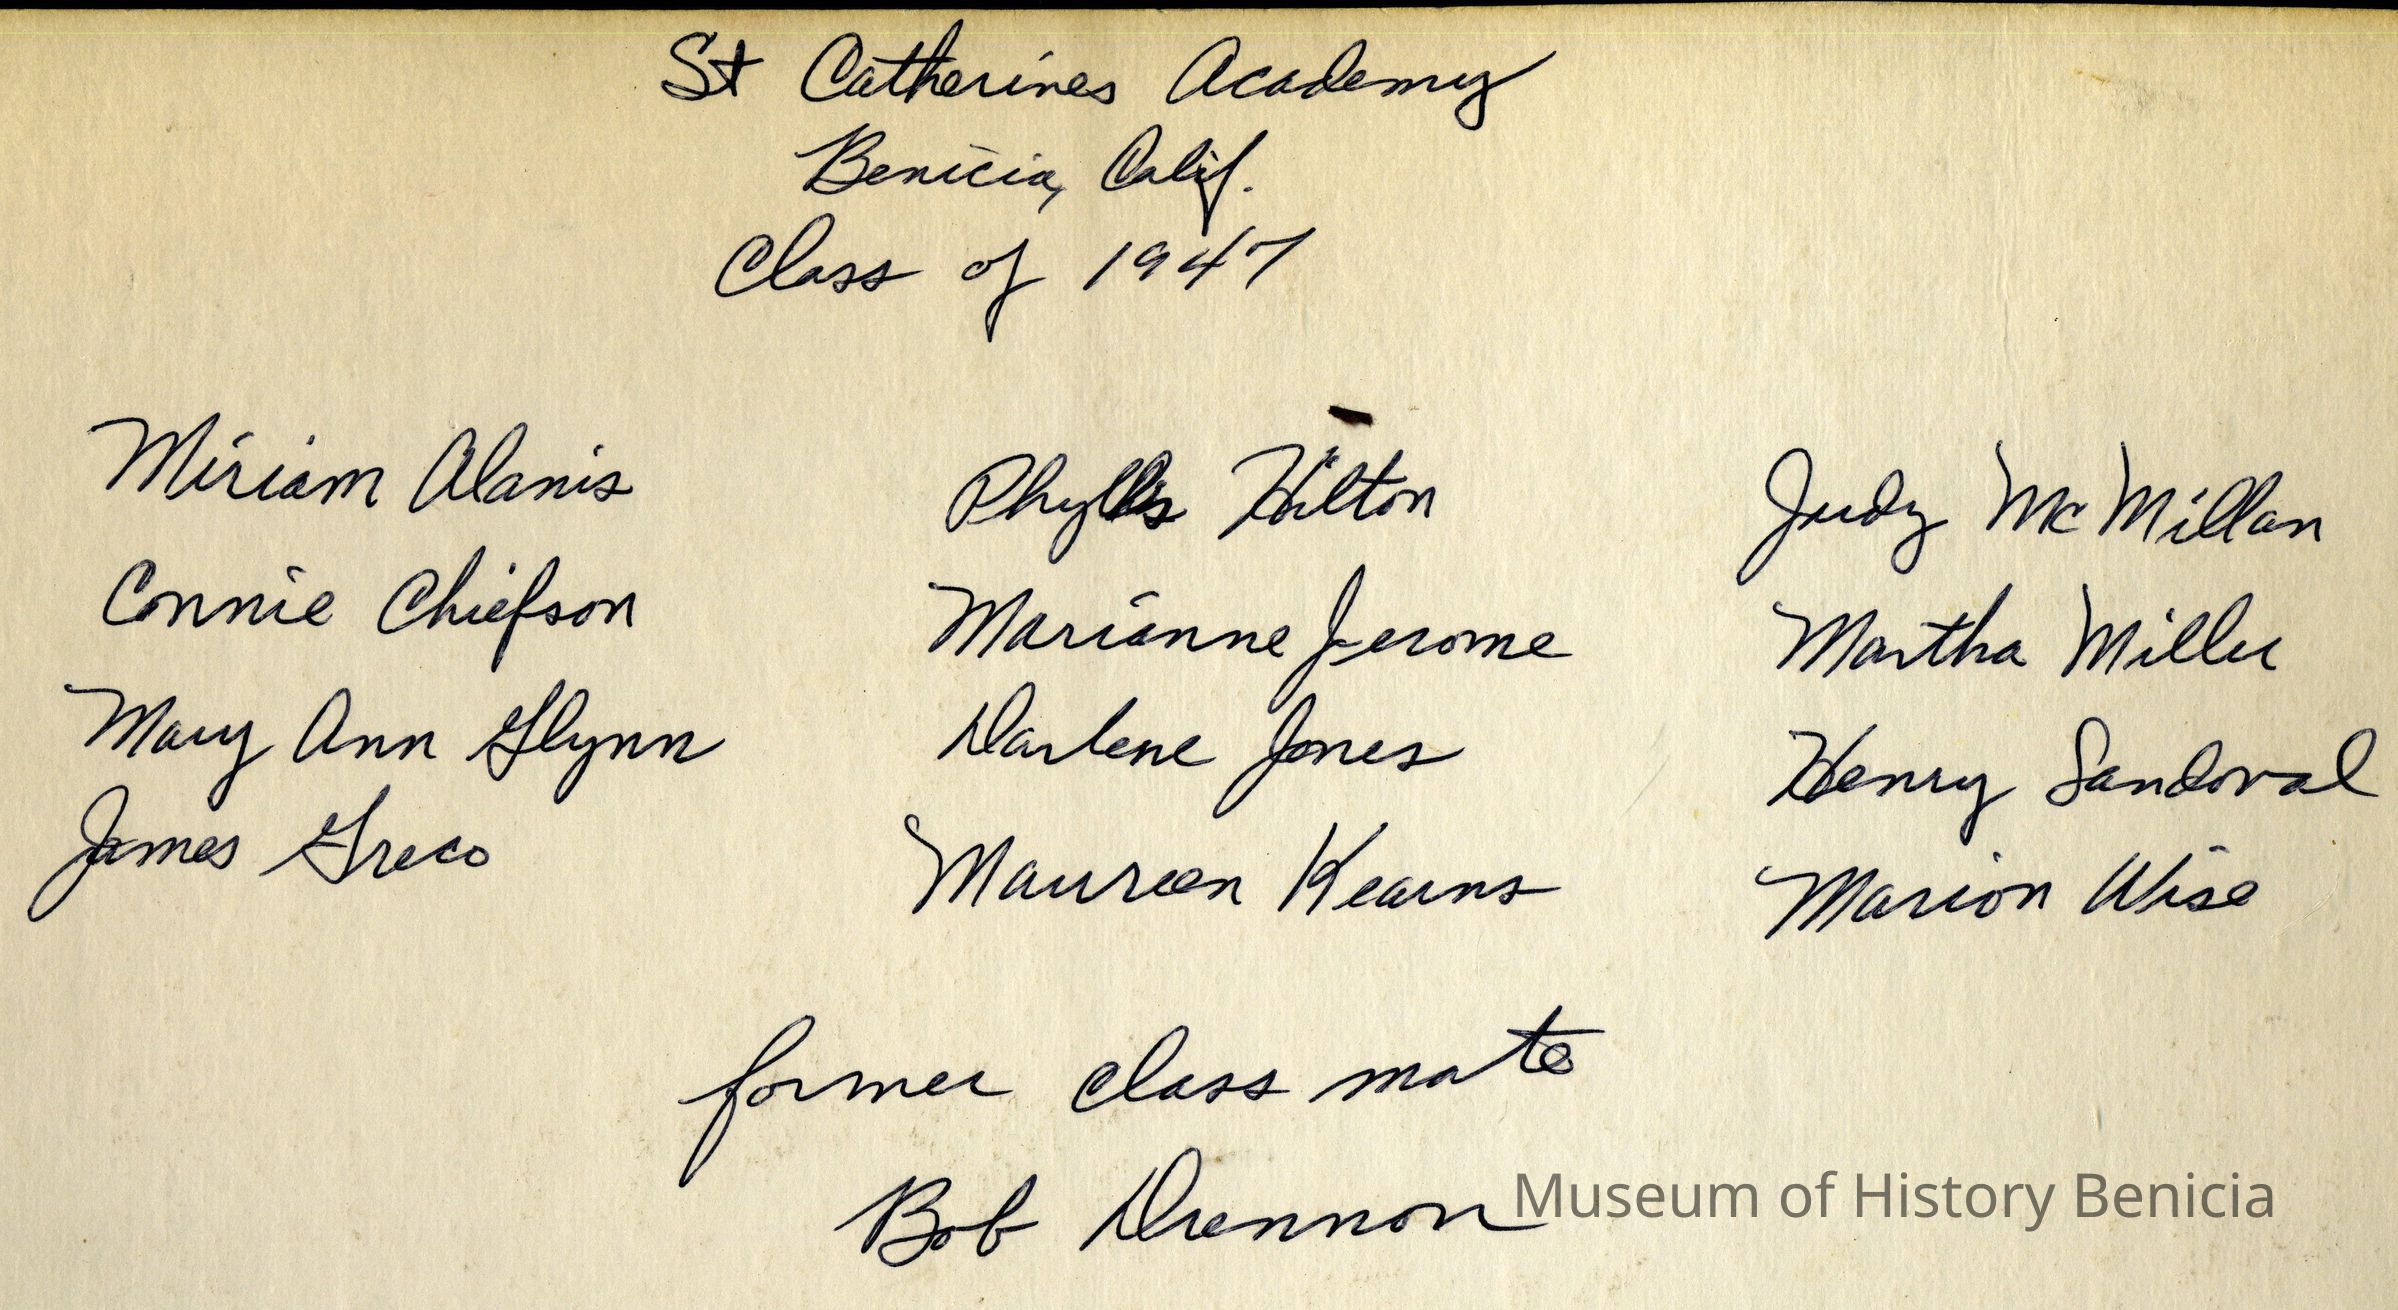 St Catherines Academy
Benicia, Calif.
Class of 1947
Miriam Alanis
Connie Chiefson
Mary Ann Glynn
James Greco
Phyllis Hilton
Marianne Jerome
Darlene Jones
Maureen Kearns
Judy McMillan
Martha Miller
Henry Sandoval
Marion Wise
former class mate
Bob Drennon
Museum of History Benicia